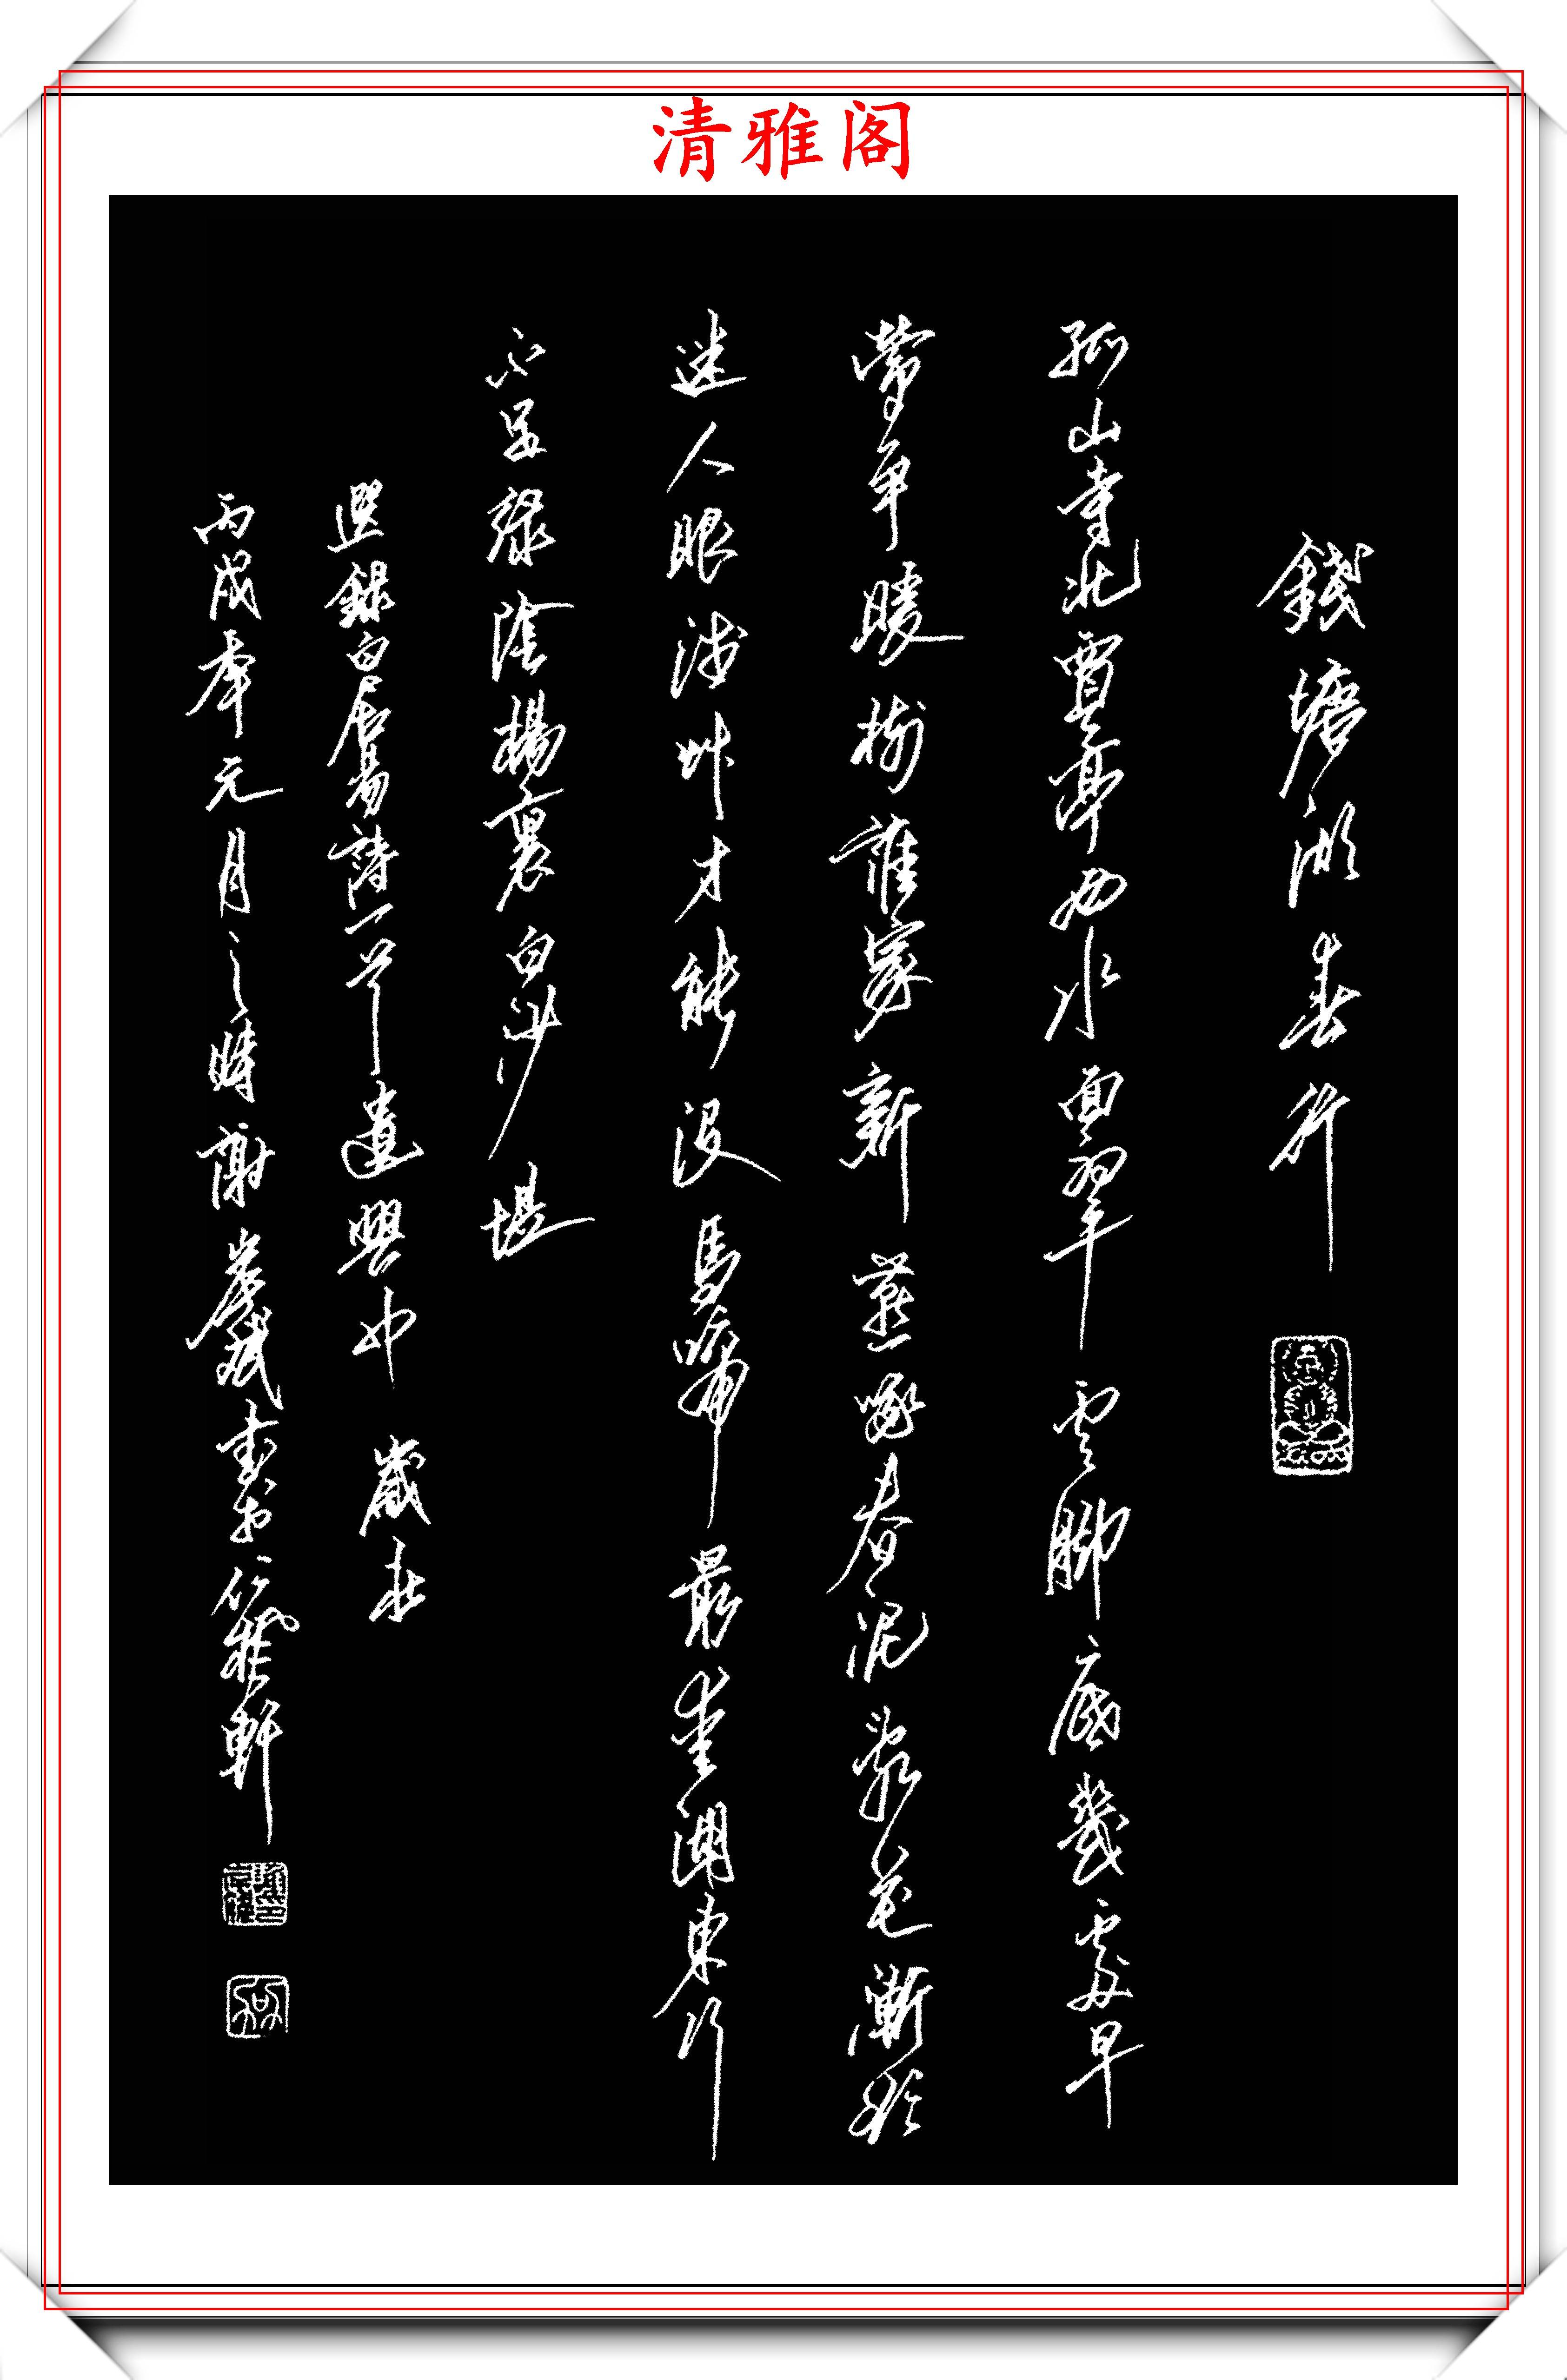 清雅阁
錢塘湖春行
孤山寺北賈亭西水面初平雲脚底幾處早
鶯爭暖樹誰家新燕啄春泥亂花漸欲
迷人眼淺艸才能沒馬啼最愛湖東行
不足綠陰楊裏白沙堤
選錄白居易詩一首遣興中 歲在
丙戌年元月之時謝 書於 雅軒